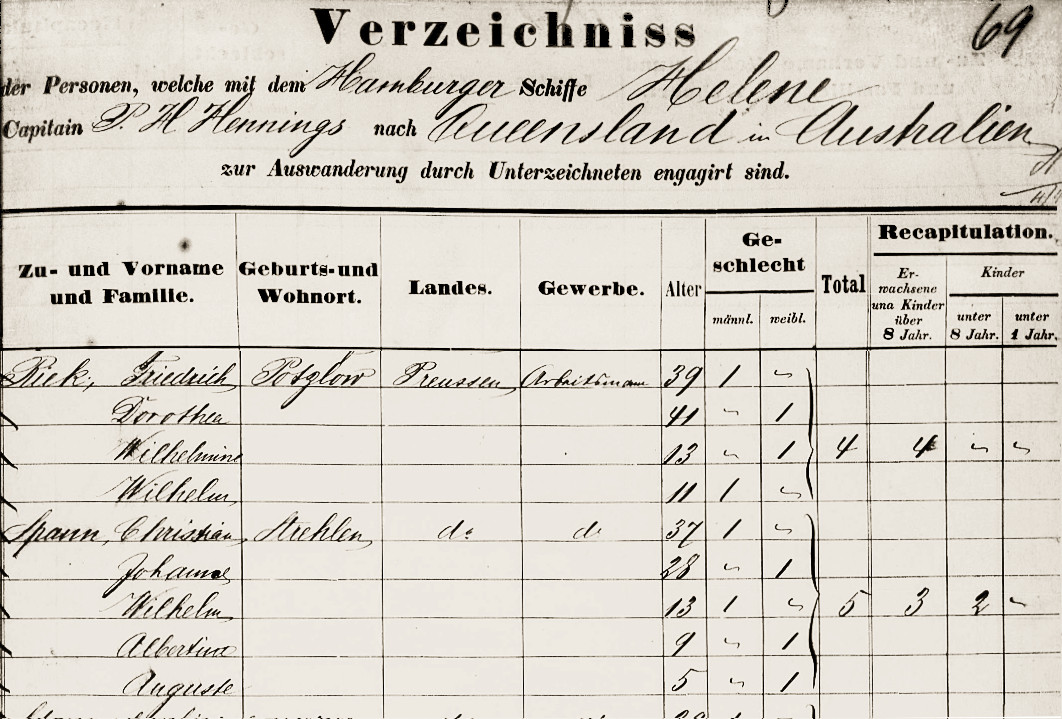 Verzeichniss
69
der Personen, welche mit dem Hamburger Schiffe Helene
Capitain P. H Hennings nach Queensland in Australien
zur Auswanderung durch Unterzeichneten engagirt sind.
Zu- und Vorname und Familie. Geburts-und Wohnort. Landes. Gewerbe. Alter Ge-schlecht männl. weibl. Total Recapitulation. Er-wachsene una Kinder über 8 Jahr. Kinder unter 8 Jahr. unter 1 Jahr.
Riek, Friedrich Potzlow Preussen Arbeitsmann 39 1 "
Dorothea 41 " 1
Wilhelmine 13 " 1 4 4 " "
Wilhelm 11 1 "
Spann, Christian Strehlen do do 37 1 "
Johanne 28 " 1
Wilhelm 13 1 " 5 3 2 "
Albertine 9 " 1
Auguste 5 " 1